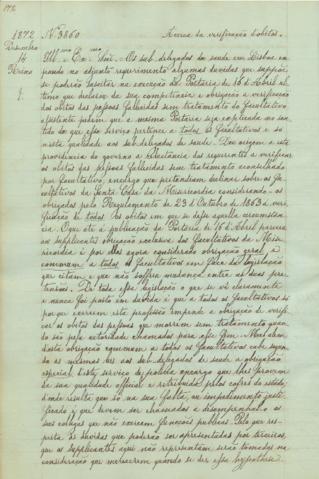 1872 Nº 3860 Acerca da verificação d'obitos.
Dezembro
14
Illmo. e Exmo. Snr. Os sub-delegados de saude em Lisboa ex-
pondo no adjunto requerimento algumas duvidas que suppõe
se poderão suscitar na execução da Portaria de 16 d'Abril ul-
timo que declarou da sua competencia a obrigação de verificação
dos obitos das pessoas fallecidas sem tratamento de facultativo
assistente pedem que a mesma Portaria seja explicada no sen-
tido de que este serviço pertence a todos os facultativos e so
n'esta qualidade aos sub-delegados de saude. Deu origem a esta
providencia do governo a reluctancia dos requerentes a verificar
os obitos das pessoas fallecidas sem tratamento aconselhado
por facultativo, encargo que pertendiam declinar sobre os fa-
cultativos da Santa Casa da Misericordia considerando-os
obrigados pelo Regulamento de 23 d'Outubro de 1863 a veri-
ficação de todos os obitos em que se desse aquella circumstan-
cia. O que até a publicação da Portaria de 16 d'Abril parecia
aos supplicantes obrigação exclusiva dos facultativos da Mise-
ricordia é por elles agora considerado obrigação geral e
commum a todos os facultativos em face da legislação
que citam e que não soffreu mudança entre as suas per-
tensões. De toda essa legislação o que se vê claramente
e nunca foi posto em duvida é que a todos os facultativos só
por que exercem esta profissão impende a obrigação de verifi-
car os obitos das pessoas que morrem sem tratamento quan-
do são pela autoridade chamados para este fim. Mas alem
desta obrigação commum a todos os facultativos cabe segun-
do as mesmas leis aos sub-delegados de saude a obrigação
especial deste serviço de policia encargo que lhes provem
da sua qualidade official e retribuida pelos cofres do estado,
d'onde resulta que só, na sua falta, ou impedimento justi-
ficado é que devem ser chamados a desempenhal-o os
seus collegas que não exercem funcções publicas. Pelo que res-
peita ás duvidas que poderão ser apresentadas por terceiros,
que os supplicantes aqui não representam serão tomadas na
consideração que merecerem quando se der essa hypothese.